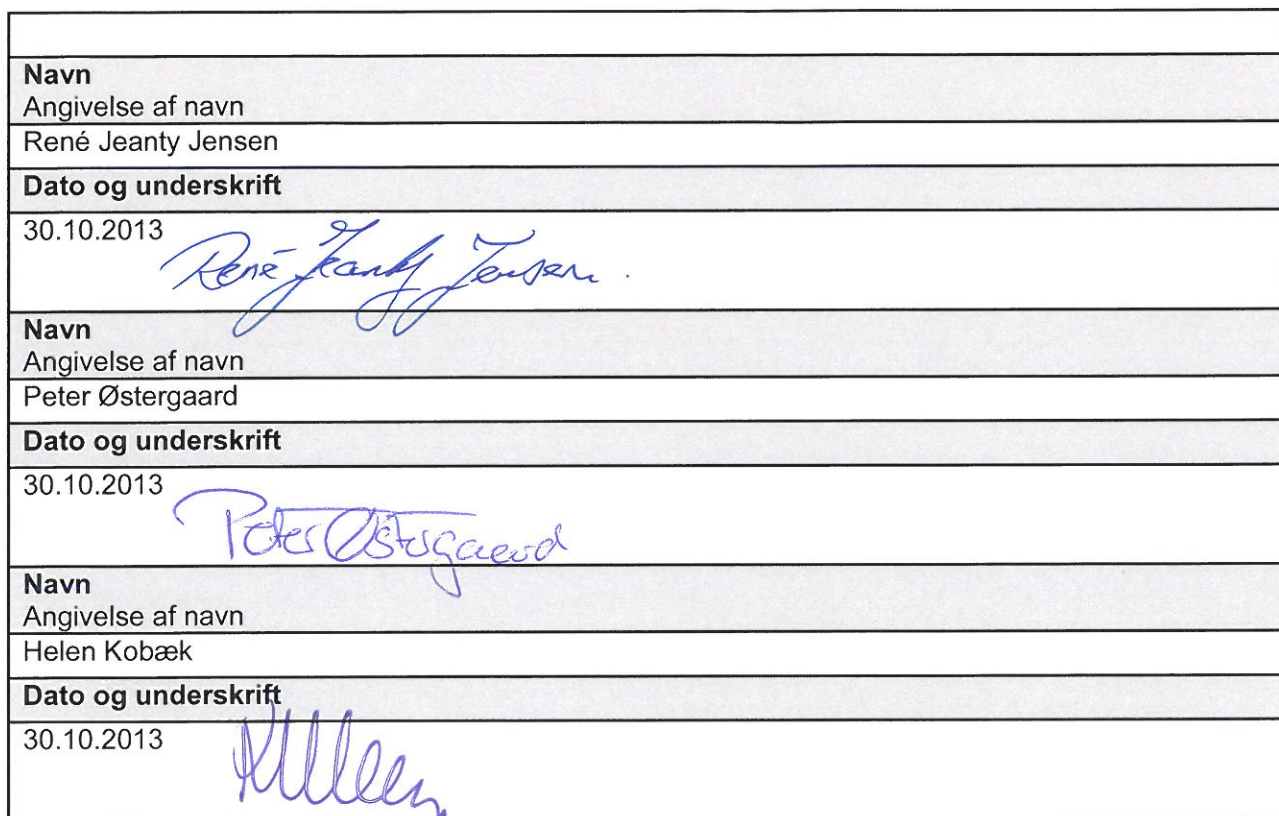 Navn
Angivelse af navn
René Jeanty Jensen
Dato og underskrift
30.10.2013
René Jeanty Jensen.
Navn
Angivelse af navn
Peter Østergaard
Dato og underskrift
30.10.2013
Peter Østergaard
Navn
Angivelse af navn
Helen Kobæk
Dato og underskrift
30.10.2013